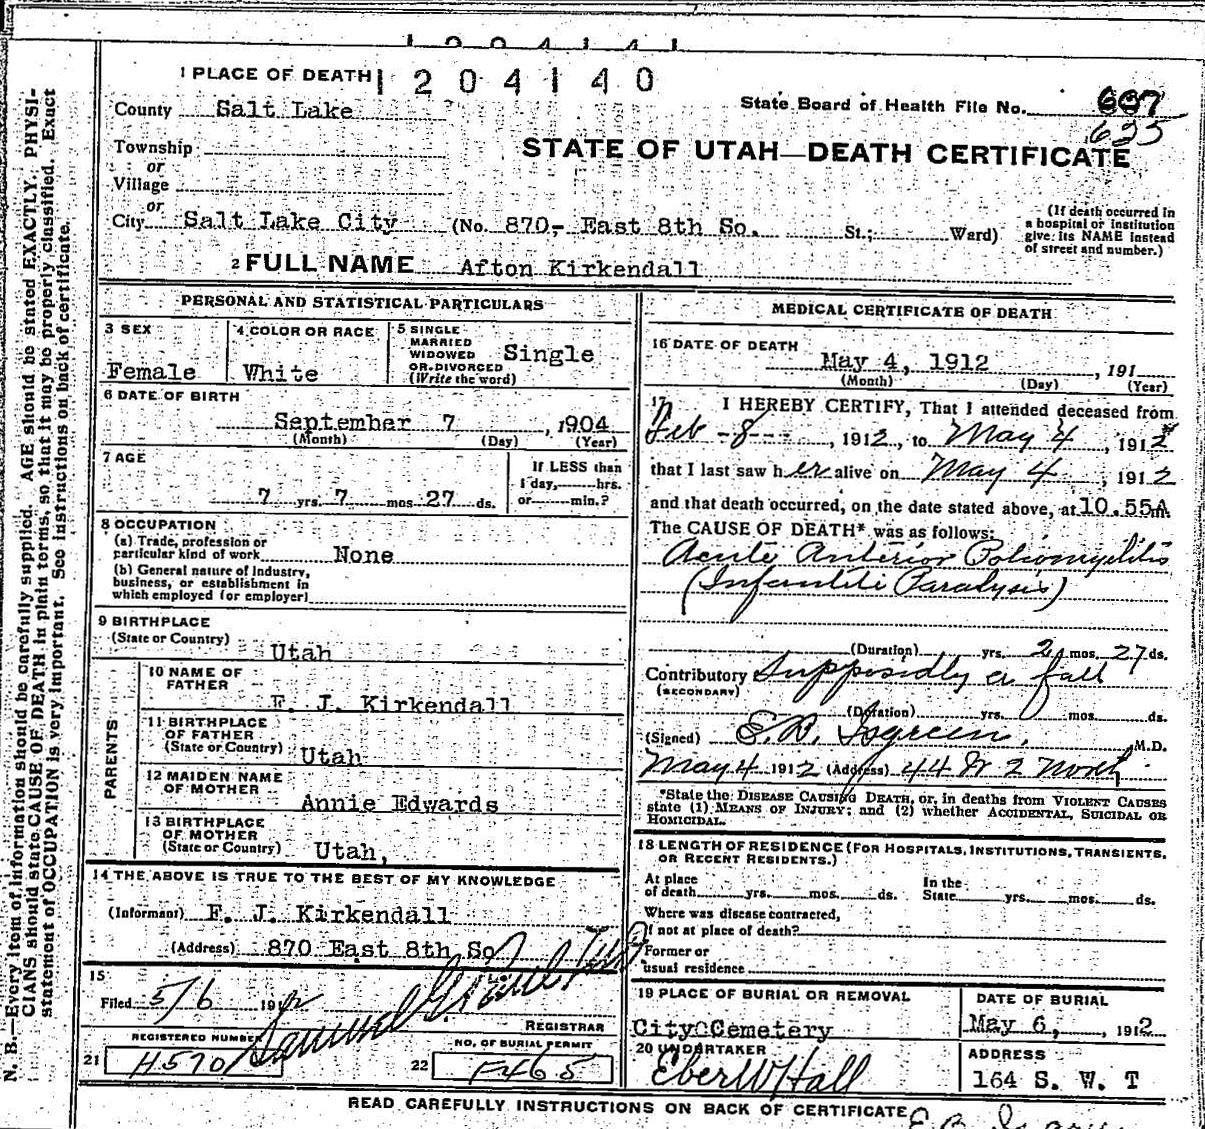 1 PLACE OF DEATH 1204140
County Salt Lake
State Board of Health File No. 607
635
Township
or
Village
STATE OF UTAH—DEATH CERTIFICATE
or
City Salt Lake City (No. 870- East 8th So. St.; Ward)
(If death occurred in a hospital or institution give its NAME instead of street and number.)
2 FULL NAME Afton Kirkendall
PERSONAL AND STATISTICAL PARTICULARS
3 SEX
Female
4 COLOR OR RACE
White
5 SINGLE
MARRIED
WIDOWED
OR DIVORCED
(Write the word)
Single
6 DATE OF BIRTH
September 7, 1904
(Month) (Day) (Year)
7 AGE
7 yrs. 7 mos. 27 ds.
If LESS than
1 day, hrs.
or min.?
8 OCCUPATION
(a) Trade, profession or
particular kind of work None
(b) General nature of Industry,
business, or establishment in
which employed (or employer)
9 BIRTHPLACE
(State or Country)
Utah
PARENTS
10 NAME OF
FATHER
F. J. Kirkendall
11 BIRTHPLACE
OF FATHER
(State or Country) Utah
12 MAIDEN NAME
OF MOTHER
Annie Edwards
13 BIRTHPLACE
OF MOTHER
(State or Country) Utah,
14 THE ABOVE IS TRUE TO THE BEST OF MY KNOWLEDGE
(Informant) F. J. Kirkendall
(Address) 870 East 8th So
15
Filed 5/6 1912 Samuel G. Paul
REGISTRAR
REGISTERED NUMBER
21 H570
NO. OF BURIAL PERMIT
22 F465
MEDICAL CERTIFICATE OF DEATH
16 DATE OF DEATH
May 4, 1912, 191
(Month) (Day) (Year)
17 I HEREBY CERTIFY, That I attended deceased from
Feb -8-, 1912, to May 4, 1912
that I last saw her alive on May 4, 1912
and that death occurred, on the date stated above, at 10.55A m.
The CAUSE OF DEATH* was as follows:
Acute Anterior Poliomyelitis
(Infantile Paralysis)
(Duration) yrs. 2 mos. 27 ds.
Contributory Supposidly a fall
(SECONDARY)
(Duration) yrs. mos. ds.
(Signed) E. B. Isgreen, M.D.
May 4 1912 (Address) 44 W 2 North
*State the DISEASE CAUSING DEATH, or, in deaths from VIOLENT CAUSES
state (1) MEANS OF INJURY; and (2) whether ACCIDENTAL, SUICIDAL OR
HOMICIDAL.
18 LENGTH OF RESIDENCE (FOR HOSPITALS, INSTITUTIONS, TRANSIENTS,
OR RECENT RESIDENTS.)
At place
of death yrs. mos. ds.
In the
State yrs. mos. ds.
Where was disease contracted,
if not at place of death?
Former or
usual residence
19 PLACE OF BURIAL OR REMOVAL
City Cemetery
DATE OF BURIAL
May 6, , 1912
20 UNDERTAKER
Eber W Hall
ADDRESS
164 S. W. T
READ CAREFULLY INSTRUCTIONS ON BACK OF CERTIFICATE
N. B.—Every item of information should be carefully supplied. AGE should be stated EXACTLY. PHYSI-
CIANS should state CAUSE OF DEATH in plain terms, so that it may be properly classified. Exact
statement of OCCUPATION is very important. See instructions on back of certificate.